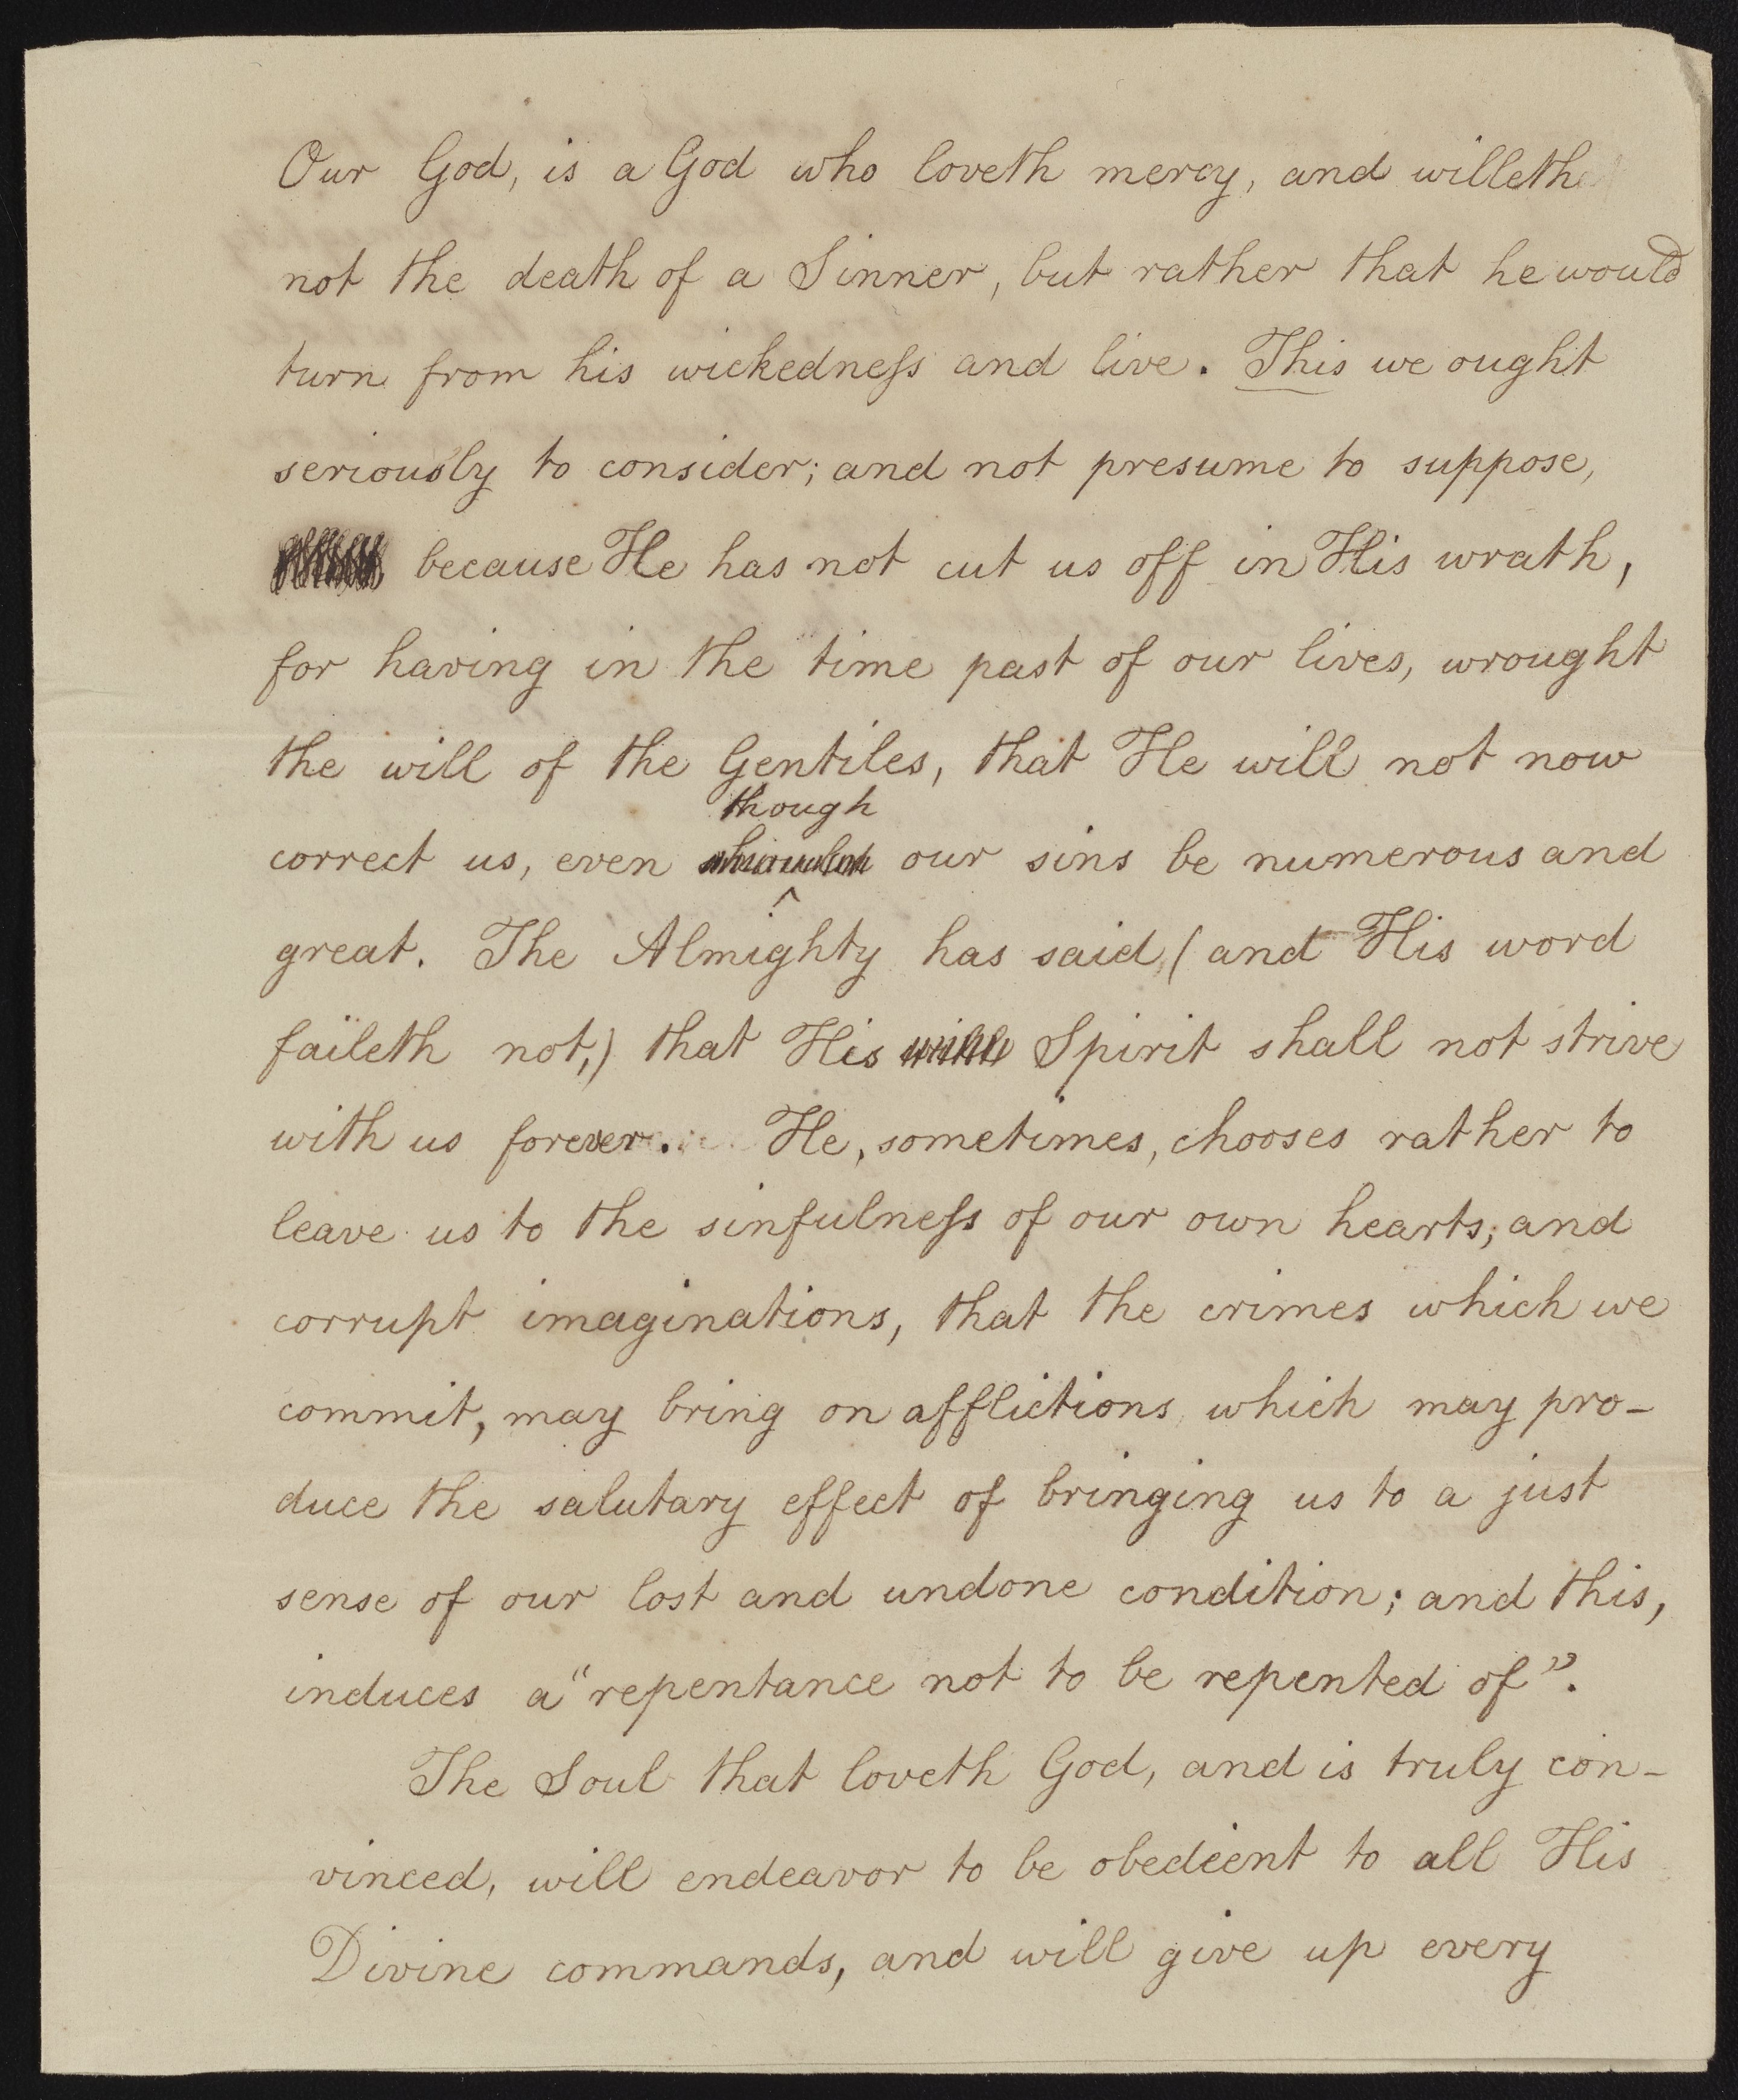 Our God, is a God who loveth mercy, and willeth
not the death of a Sinner, but rather that he would
turn from his wickedneſs and live. This we ought
seriously to consider; and not presume to suppose,
because He has not cut us off in His wrath,
for having in the time past of our lives, wrought
the will of the Gentiles, that He will not now
though
correct us, even our sins be numerous and
great. The Almighty has said, (and His word
faileth not,) that His will Spirit shall not strive
with us forever. He, sometimes, chooses rather to
leave us to the sinfulneſs of our own hearts, and
corrupt imaginations, that the crimes which we
commit, may bring on afflictions, which may pro-
duce the salutary effect of bringing us to a just
sense of our lost and undone condition; and this,
induces a "repentance not to be repented of".
The Soul that loveth God, and is truly con-
vinced, will endeavor to be obedient to all His
Divine commands, and will give up every